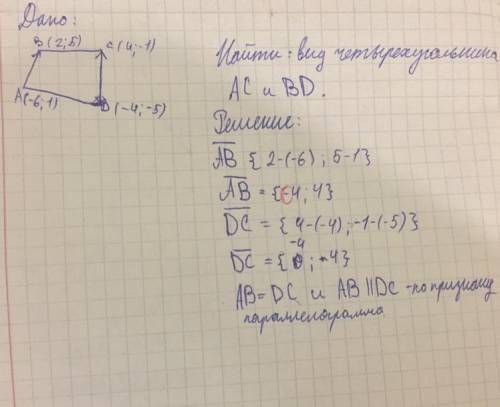 Дано:
B(2;5)
C(4;-1)
A(-6;1)
D(-4;-5)
Найти: вид четырехугольника
AC и BD.
Решение:
AB {2-(-6); 5-1}
AB = {-4; 4}
DC = {4-(-4); -1-(-5)}
-4
DC = {0; -4}
AB=DC и AB||DC -по признаку
параллелограмма